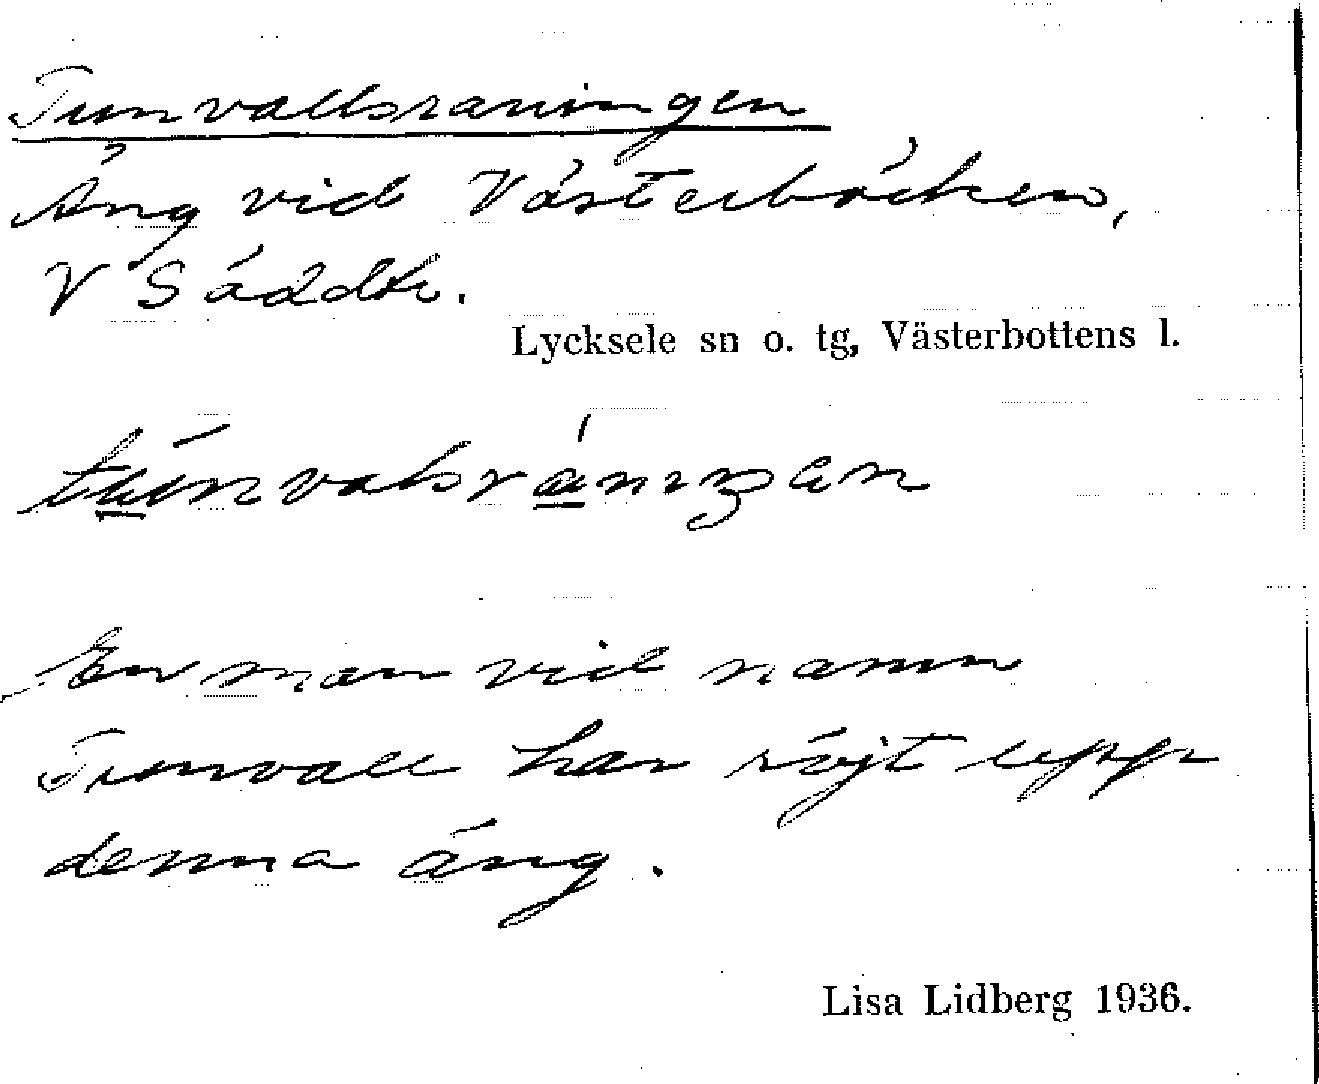 Tunvallsraningen
Äng vid Västerbäcken,
V Sädde.
Lycksele sn o. tg, Västerbottens l.
tunvalsránıŋan
En man vid namn
Tunvall har röjt upp
denna äng.
Lisa Lidberg 1936.